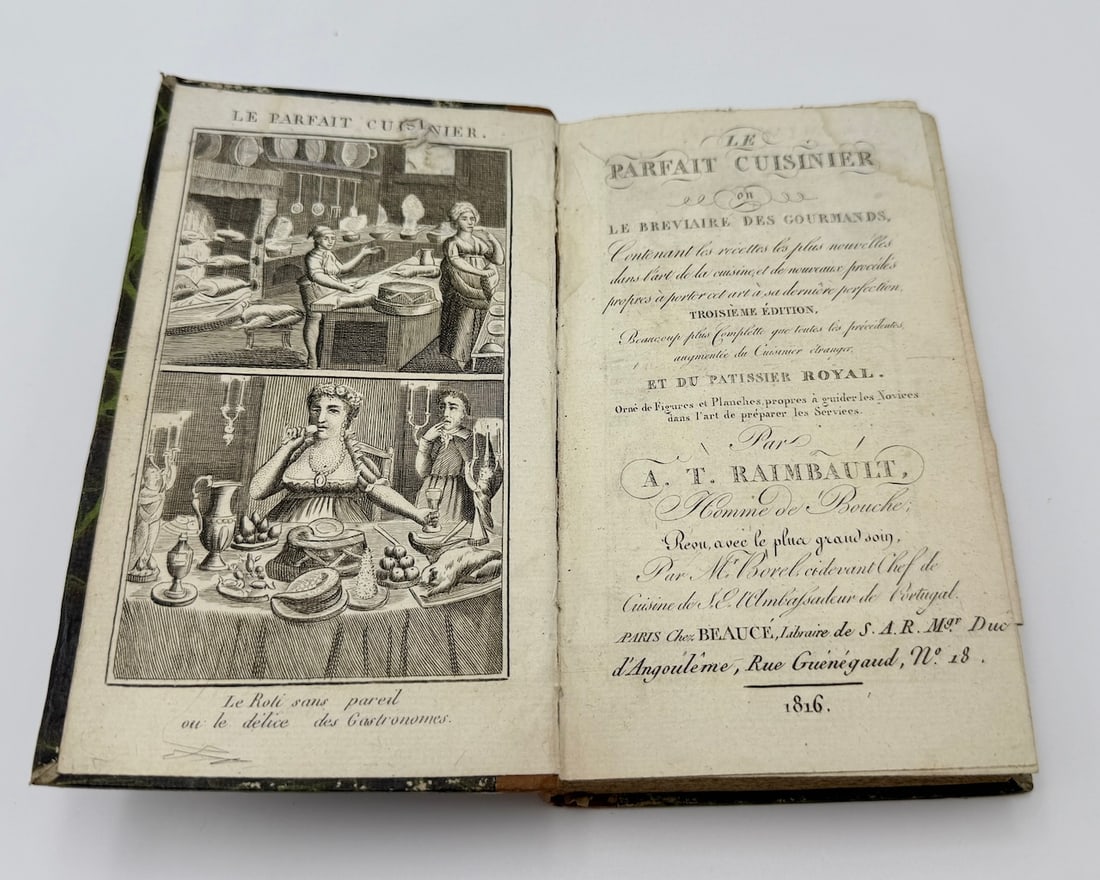 LE PARFAIT CUISINIER.
Le Roti sans pareil
ou le délice des Gastronomes.
LE
PARFAIT CUISINIER
ou
LE BREVIAIRE DES GOURMANDS,
Contenant les recettes les plus nouvelles
dans l'art de la cuisine, et de nouveaux procédés
propres à porter cet art à sa dernière perfection,
TROISIÈME ÉDITION,
Beaucoup plus Complette que toutes les précédentes,
augmentée du Cuisinier étranger,
ET DU PATISSIER ROYAL.
Orné de Figures et Planches, propres à guider les Novices
dans l'art de préparer les Services.
Par
A. T. RAIMBAULT,
Homme de Bouche;
Revu, avec le plus grand soin,
Par Mr. Borel, cidevant Chef de
Cuisine de S. E. l'Ambassadeur de Portugal.
A PARIS Chez BEAUCÉ, Libraire de S. A. R. Mgr. Duc
d'Angoulême, Rue Guénégaud, No. 18.
1816.